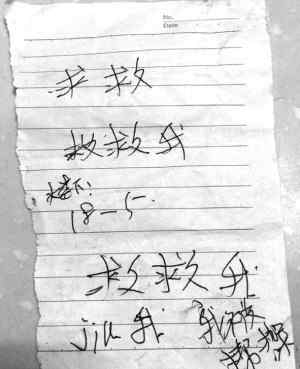 No.
Date
求救
救救我
楼下:
18-5
救救我
jiu我 我家被